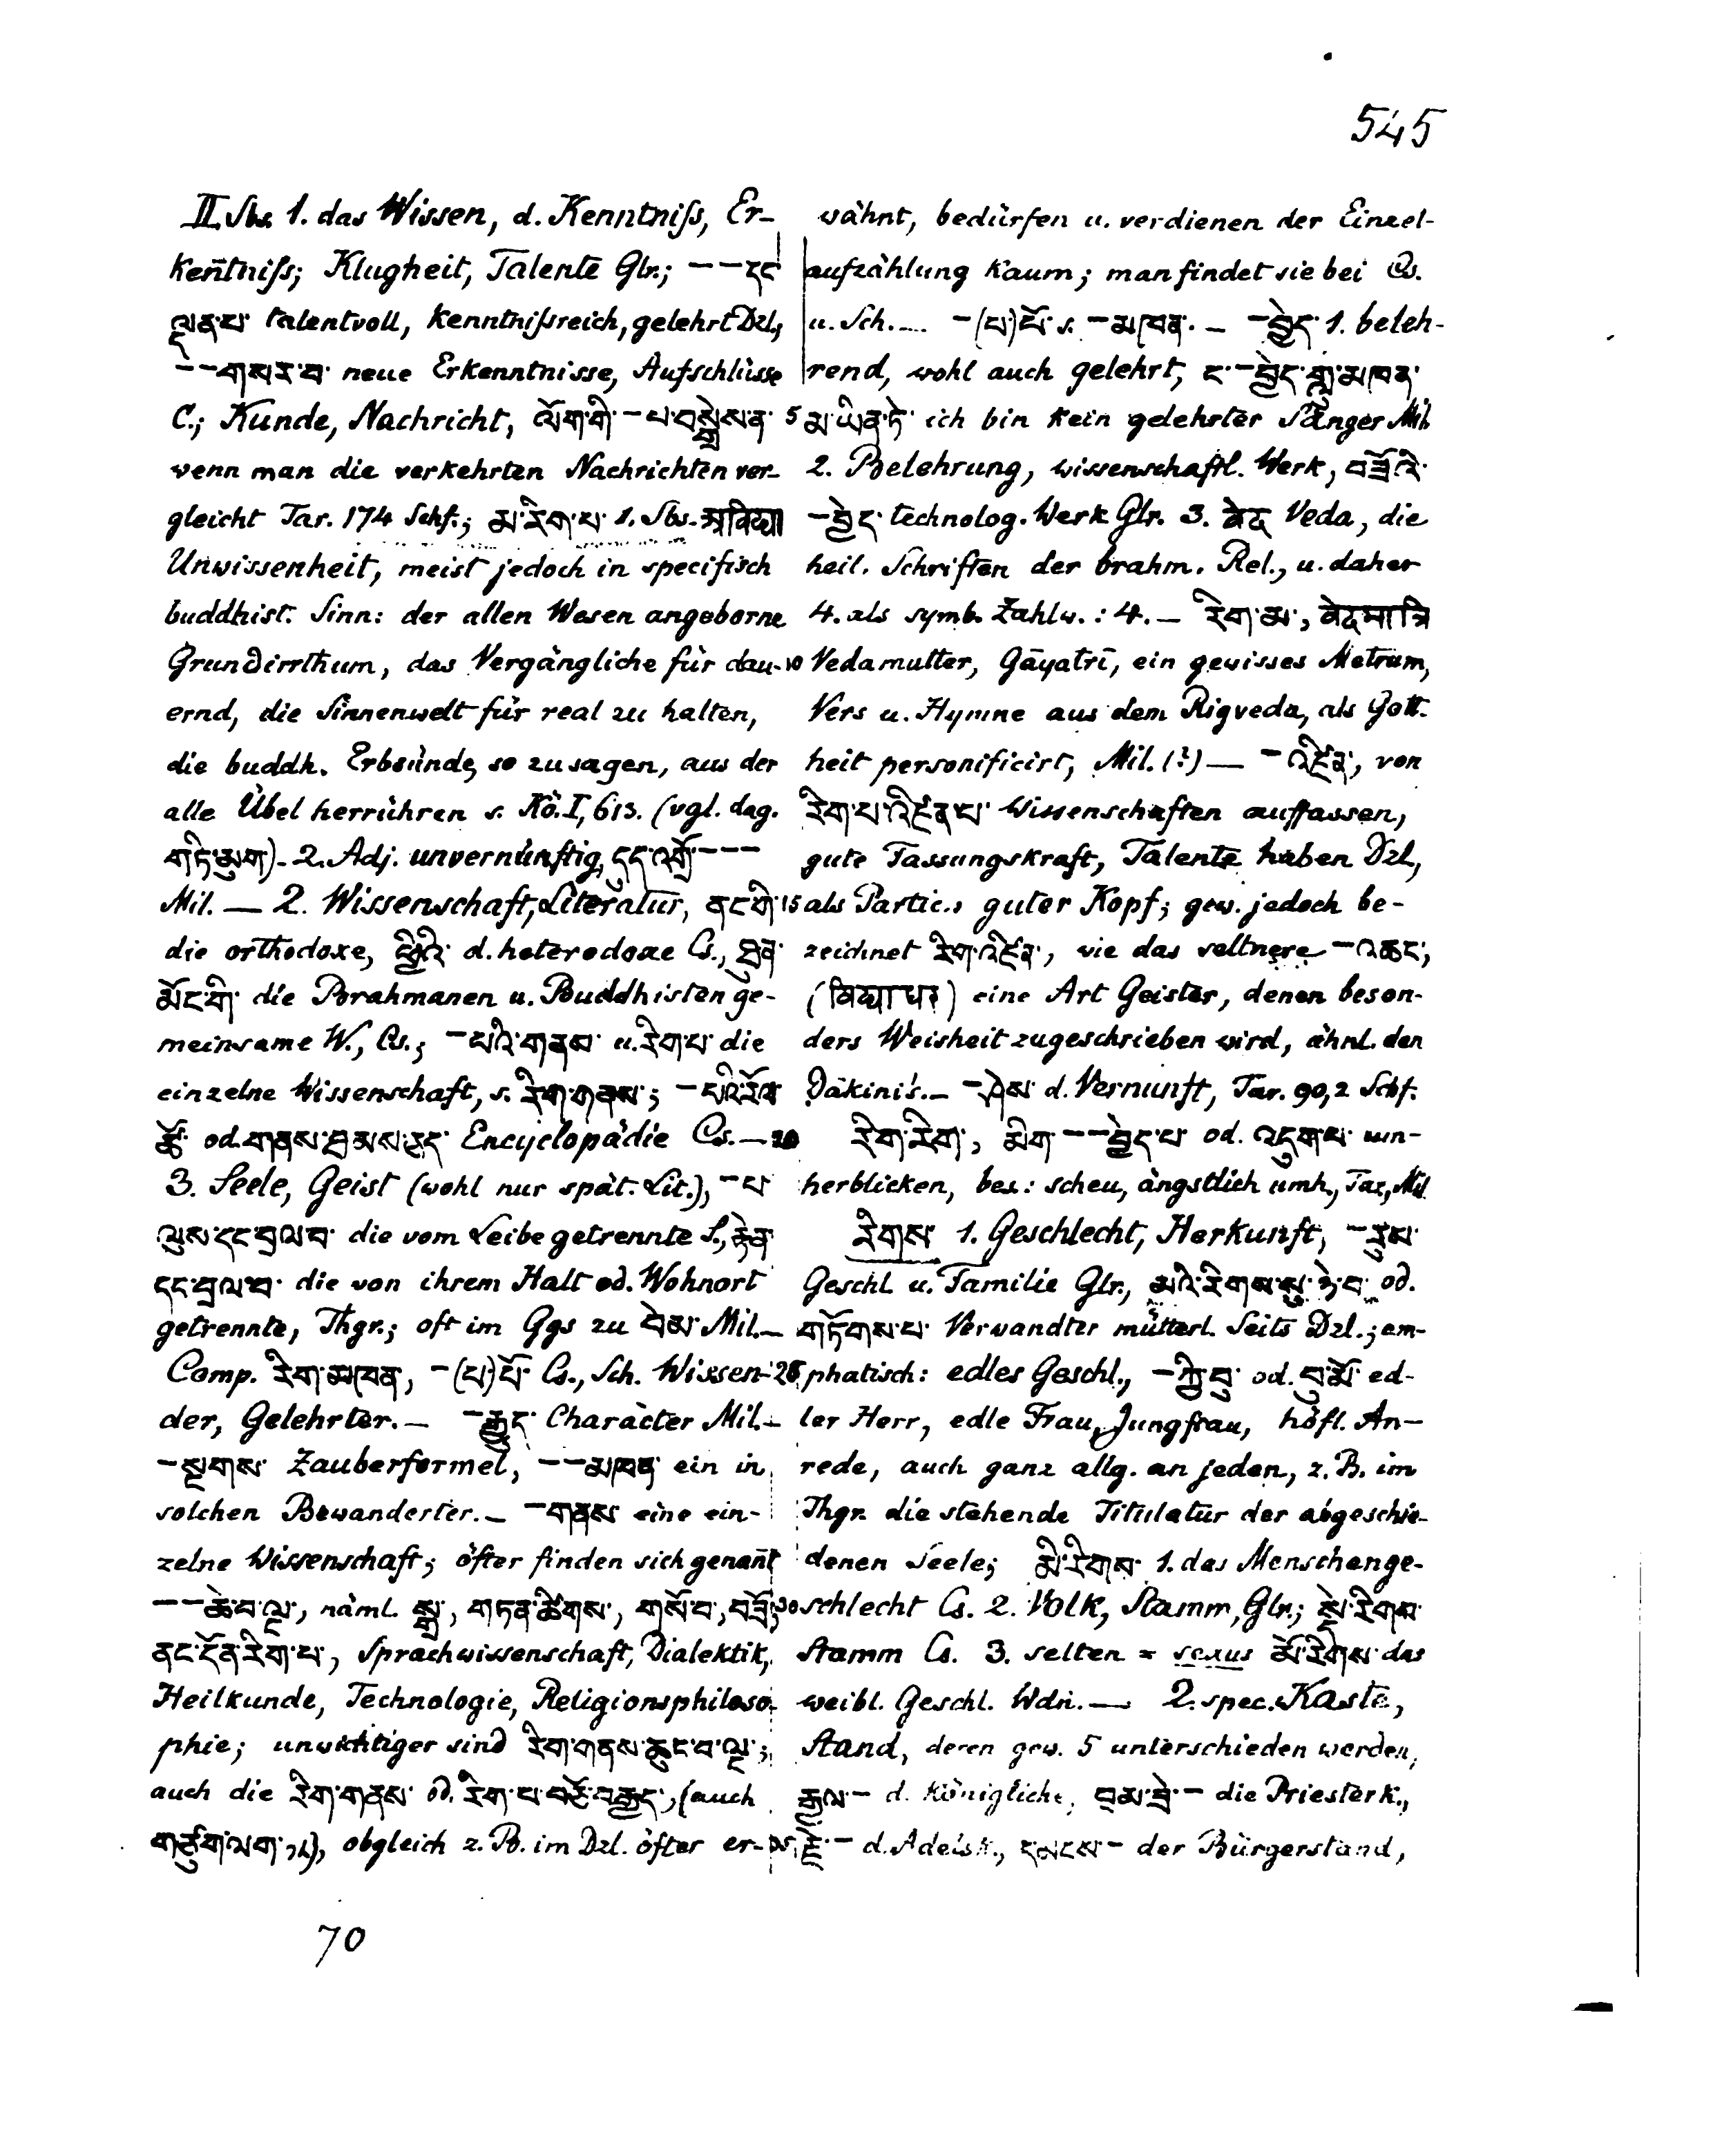 545
II. Sbs. 1. das Wissen, d. Kenntniß, Er-
ken̄tniß; Klugheit, Talente Glr.; – – དང་
ལྡན་པ་ talentvoll, kenntnißreich, gelehrt Dzl.,
– – གསར་བ་ neue Erkenntnisse, Aufschlüsse
C.; Kunde, Nachricht, ལོག་གི་ – པ་བསྒྲེས་ན་
wenn man die verkehrten Nachrichten ver-
gleicht Tar. 174 Schf.; མ་རིག་པ་ 1. Sbs. अविद्या
Unwissenheit, meist jedoch in specifisch
buddhist. Sinn: der allen Wesen angeborne
Grundirrthum, das Vergängliche für dau-
ernd, die Sinnenwelt für real zu halten,
die buddh. Erbsünde, so zu sagen, aus der
alle Übel herrühren s. Kö. I, 613. (vgl. dag.
གཏི་མུག་). 2. Adj. unvernünftig, དུད་འགྲོ་ – – –
Mil. — 2. Wissenschaft, Literatur, ནང་གི་
die orthodoxe, ཕྱིའི་ d. heterodoxe Cs., ཐུན་
མོང་གི་ die Brahmanen u. Buddhisten ge-
meinsame W., Cs.; – པའི་གནས་ u. རིག་པ་ die
einzelne Wissenschaft, s. རིག་གནས་; – པའི་རོལ་
མཚོ་ od. གནས་ཐམས་ཅད་ Encyclopädie Cs. —
3. Seele, Geist (wohl nur spät. Lit.), – པ་
ལུས་དང་བྲལ་བ་ die vom Leibe getrennte S., རྟེན་
དང་བྲལ་བ་ die von ihrem Halt od. Wohnort
getrennte, Thgr.; oft im Ggs zu བེམ་ Mil. —
Comp. རིག་མཁན་, – (པ་)པོ་ Cs., Sch. Wissen-
der, Gelehrter. — – རྒྱུད་ Character Mil. —
– སྔགས་ Zauberformel, – – མཁན་ ein in
solchen Bewanderter. — – གནས་ eine ein-
zelne Wissenschaft; öfter finden sich genan̄t
– – ཆེ་བ་ལྔ་, näml. སྒྲ་, གཏན་ཚིགས་, གསོ་བ་, བཟོ་,
ནང་དོན་རིག་པ་, Sprachwissenschaft, Dialektik,
Heilkunde, Technologie, Religionsphiloso-
phie; unwichtiger sind རིག་གནས་ཆུང་བ་ལྔ་;
auch die རིག་གནས་ od. རིག་པ་བཅོ་བརྒྱད་, (auch
གཙུག་ལག་ ), obgleich z. B. im Dzl. öfter er-
wähnt, bedürfen u. verdienen der Einzel-
aufzählung kaum; man findet sie bei Cs.
u. Sch. — – (པ་)པོ་ s. – མཁན་. — – བྱེད་ 1. beleh-
rend, wohl auch gelehrt, ང་ – བྱེད་གླུ་མཁན་
5 མ་ཡིན་ཏེ་ ich bin kein gelehrter Sänger Mil.
2. Belehrung, wissenschaftl. Werk, བཟོའི་
– བྱེད་ technolog. Werk Glr. 3. वेद Veda, die
heil. Schriften der brahm. Rel., u. daher
4. als symb. Zahlw.: 4. — རིག་མ་, वेदमातृ
10 Vedamutter, Gāyatrī, ein gewisses Metrum,
Vers u. Hymne aus dem Rigveda, als Gott-
heit personificirt, Mil. (?) — – འཛིན་, von
རིག་པ་འཛིན་པ་ Wissenschaften auffassen,
gute Fassungskraft, Talente haben Dzl.,
15 als Partic.: guter Kopf; gew. jedoch be-
zeichnet རིག་འཛིན་, wie das seltnere – འཆང་,
(विद्याधर) eine Art Geister, denen beson-
ders Weisheit zugeschrieben wird, ähnl. den
Ḍākinī's. — – ཤེས་ d. Vernunft, Tar. 90,2 Schf.
20 རིག་རིག་, མིག་ – – བྱེད་པ་ od. འདུག་པ་ um-
herblicken, bes.: scheu, ängstlich umh., Tar., Mil.
རིགས་ 1. Geschlecht, Herkunft, – རུས་
Geschl. u. Familie Glr., མའི་རིགས་སུ་ཉེ་བ་ od.
གཏོགས་པ་ Verwandter mütterl. Seits Dzl.; em-
25 phatisch: edles Geschl., – ཀྱི་བུ་ od. བུ་མོ་ ed-
ler Herr, edle Frau, Jungfrau, höfl. An-
rede, auch ganz allg. an jeden, z. B. im
Thgr. die stehende Titulatur der abgeschie-
denen Seele; མི་རིགས་ 1. das Menschenge-
30 schlecht Cs. 2. Volk, Stamm, Glr.; སྡེ་རིགས་
Stamm Cs. 3. selten = sexus མོ་རིགས་ das
weibl. Geschl. Wdn. — 2. spec. Kaste,
Stand, deren gew. 5 unterschieden werden,
རྒྱལ་ – d. Königliche, བྲམ་ཟེ་ – die Priesterk.,
རྗེ་ – d. Adelsk., དམངས་ – der Bürgerstand,
70